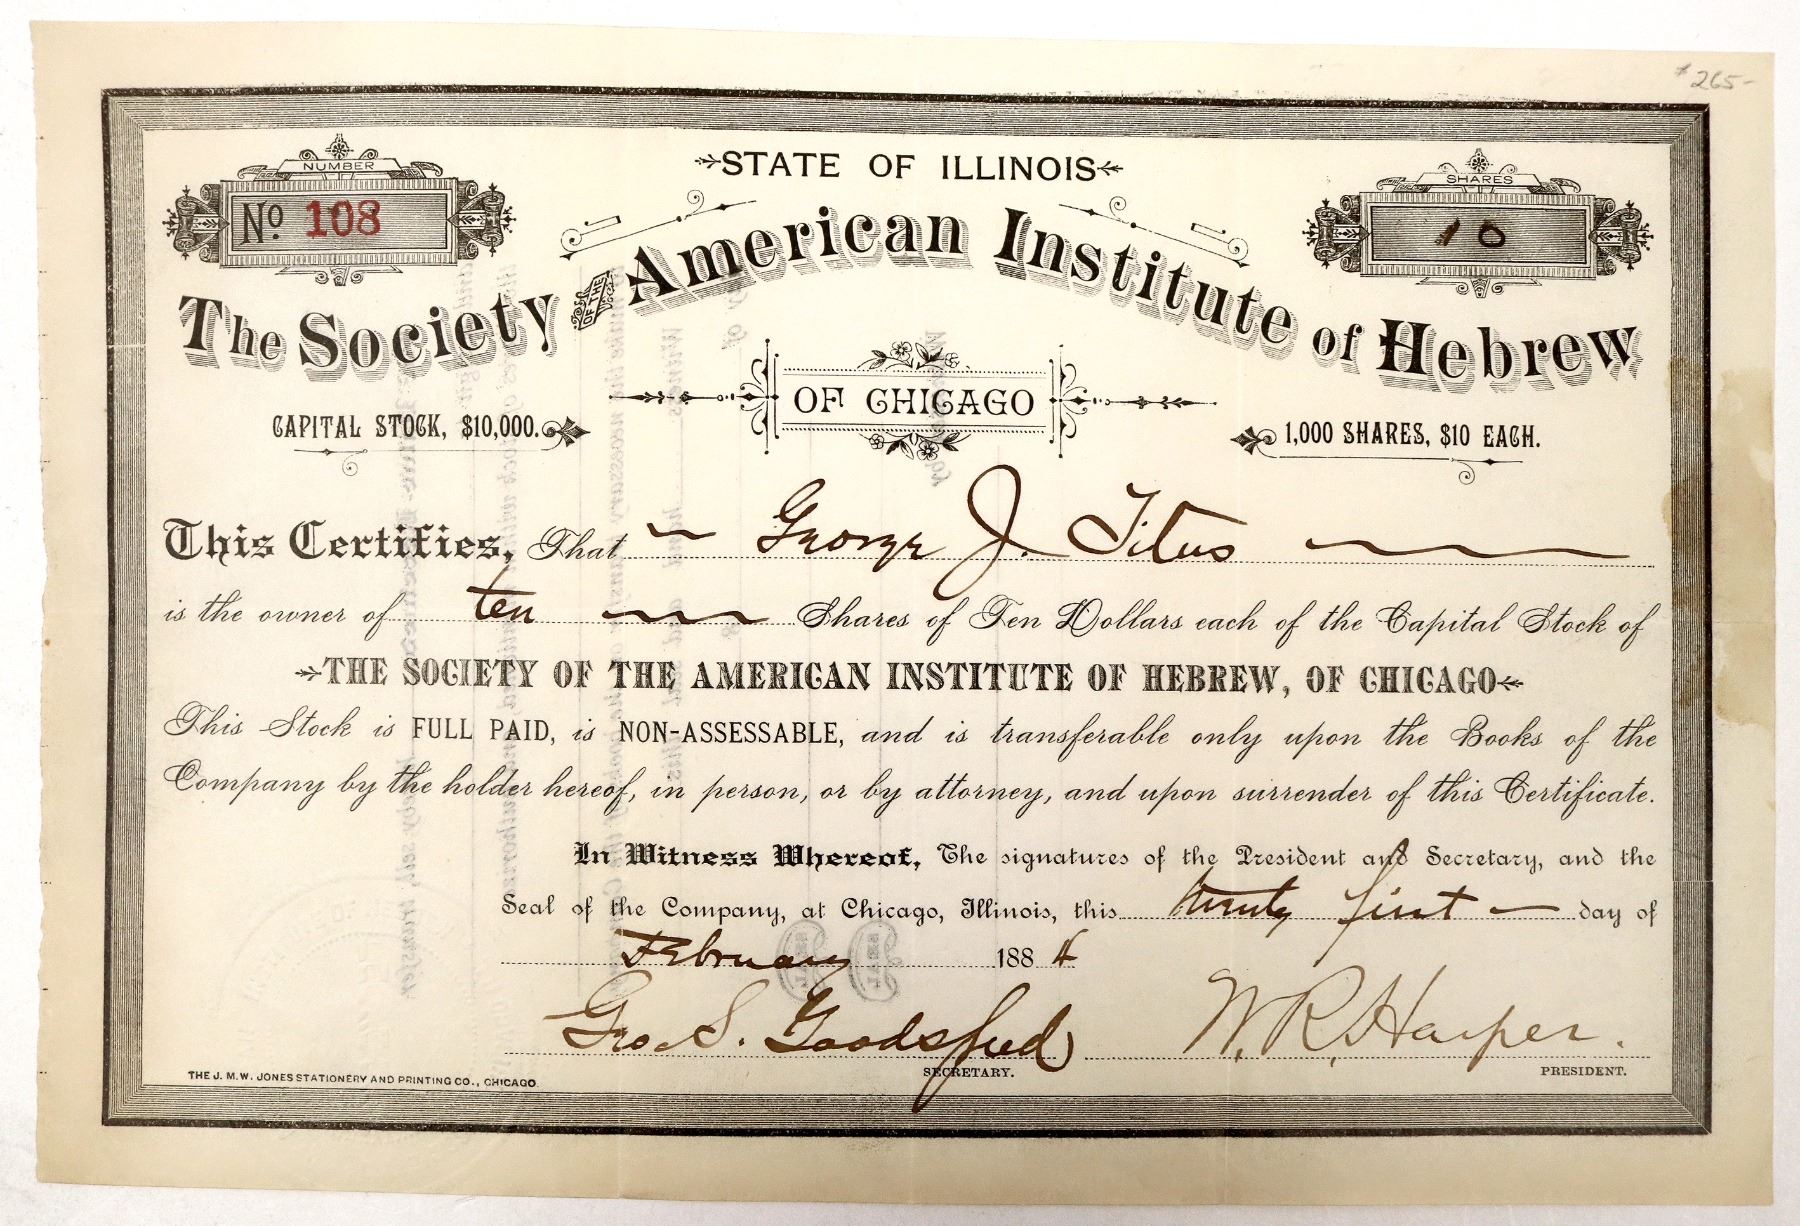 $265-
NUMBER
No. 108
STATE OF ILLINOIS
SHARES
10
The Society OF THE American Institute of Hebrew
OF CHICAGO
CAPITAL STOCK, $10,000.
1,000 SHARES, $10 EACH.
This Certifies, That George J. Titus
is the owner of ten Shares of Ten Dollars each of the Capital Stock of
THE SOCIETY OF THE AMERICAN INSTITUTE OF HEBREW, OF CHICAGO
This Stock is FULL PAID, is NON-ASSESSABLE, and is transferable only upon the Books of the
Company by the holder hereof, in person, or by attorney, and upon surrender of this Certificate.
In Witness Whereof, The signatures of the President and Secretary, and the
Seal of the Company, at Chicago, Illinois, this twenty first day of
February 1884
Geo. S. Goodspeed W. R. Harper.
SECRETARY. PRESIDENT.
THE J. M. W. JONES STATIONERY AND PRINTING CO., CHICAGO.